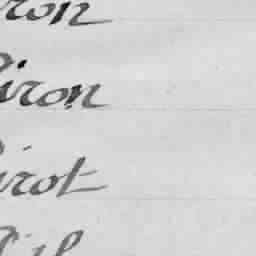 ron
iron
irot